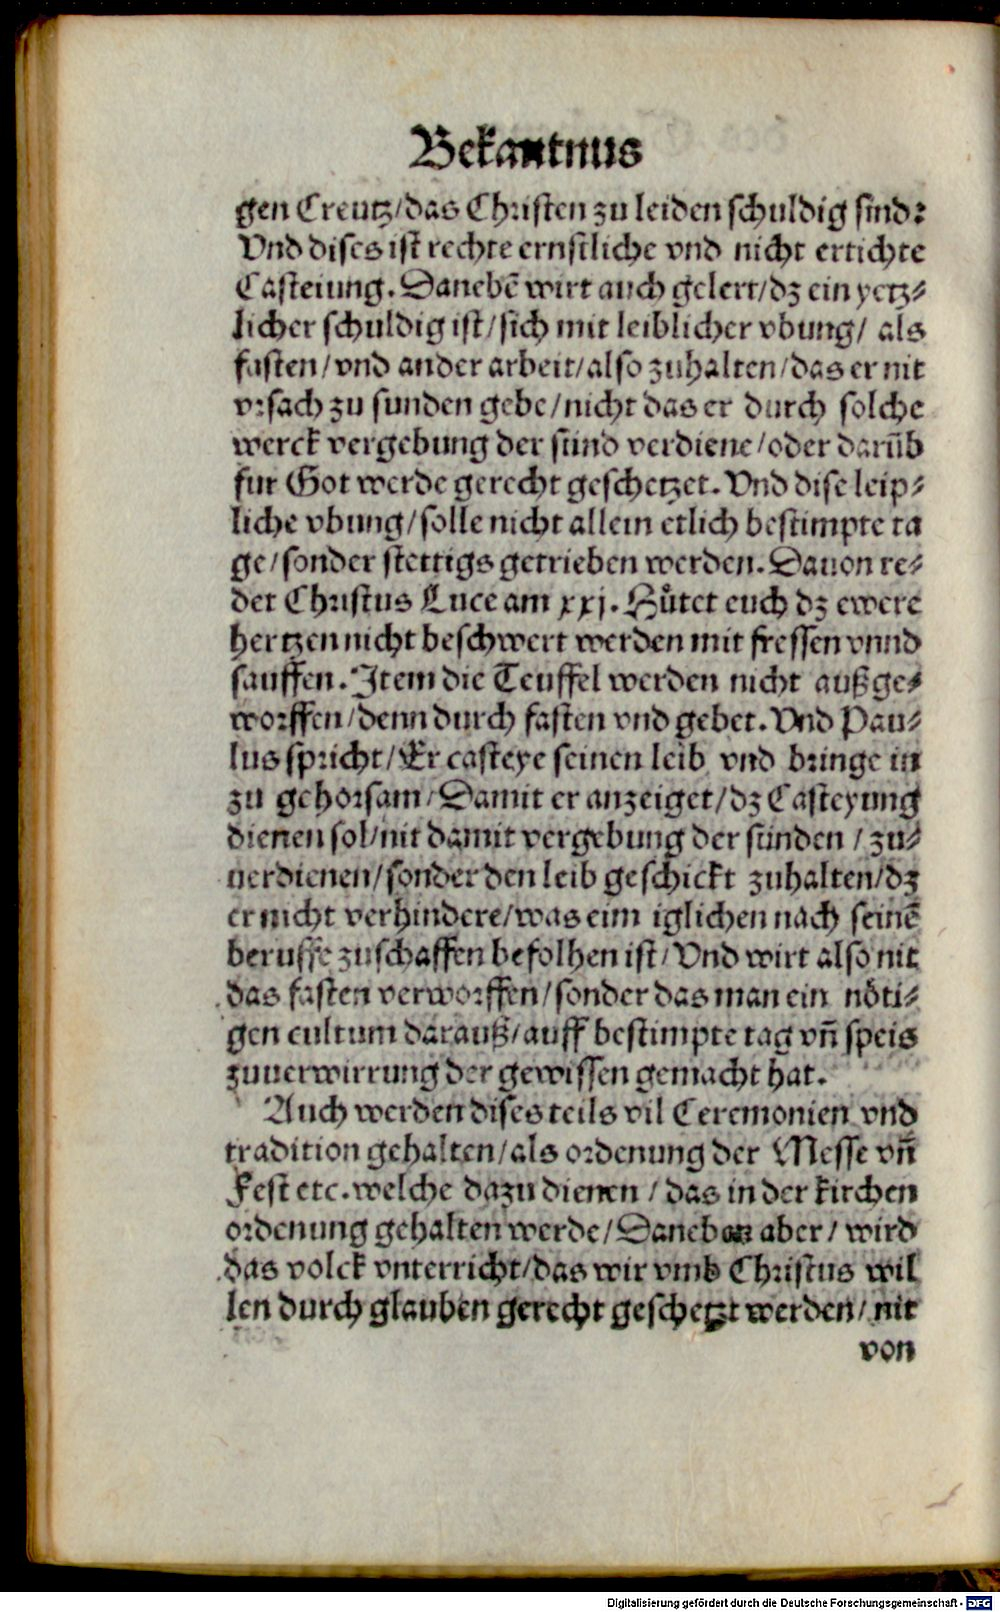 Bekantnus
gen Creutz/das Christen zu leiden schuldig sind:
Vnd dises ist rechte ernstliche vnd nicht ertichte
Casteiung. Danebē wirt auch gelert/dz ein yetz⸗
licher schuldig ist/sich mit leiblicher vbung/ als
fasten/vnd ander arbeit/also zuhalten/das er nit
vrsach zu sunden gebe/nicht das er durch solche
werck vergebung der sünd verdiene/oder darūb
fur Got werde gerecht geschetzet. Vnd dise leip⸗
liche vbung/solle nicht allein etlich bestimpte ta
ge/sonder stettigs getrieben werden. Dauon re⸗
det Christus Luce am xxj. Hůtet euch dz ewere
hertzen nicht beschwert werden mit fressen vnnd
sauffen. Item die Teuffel werden nicht außge⸗
worffen/denn durch fasten vnd gebet. Vnd Pau⸗
lus spricht/Er casteye seinen leib vnd bringe in
zu gehorsam/Damit er anzeiget/dz Casteyung
dienen sol/nit damit vergebung der sünden / zu⸗
uerdienen/sonder den leib geschickt zuhalten/dz
er nicht verhindere/was eim iglichen nach seinē
beruffe zuschaffen befolhen ist/Vnd wirt also nit
das fasten verworffen/sonder das man ein nöti⸗
gen cultum darauß/auff bestimpte tag vn̄ speis
zuuerwirrung der gewissen gemacht hat.
Auch werden dises teils vil Ceremonien vnd
tradition gehalten/als ordenung der Messe vn̄
Fest etc. welche dazu dienen / das in der kirchen
ordenung gehalten werde/Daneben aber/ wird
das volck vnterricht/das wir vmb Christus wil
len durch glauben gerecht geschetzt werden/nit
von
Digitalisierung gefördert durch die Deutsche Forschungsgemeinschaft - DFG